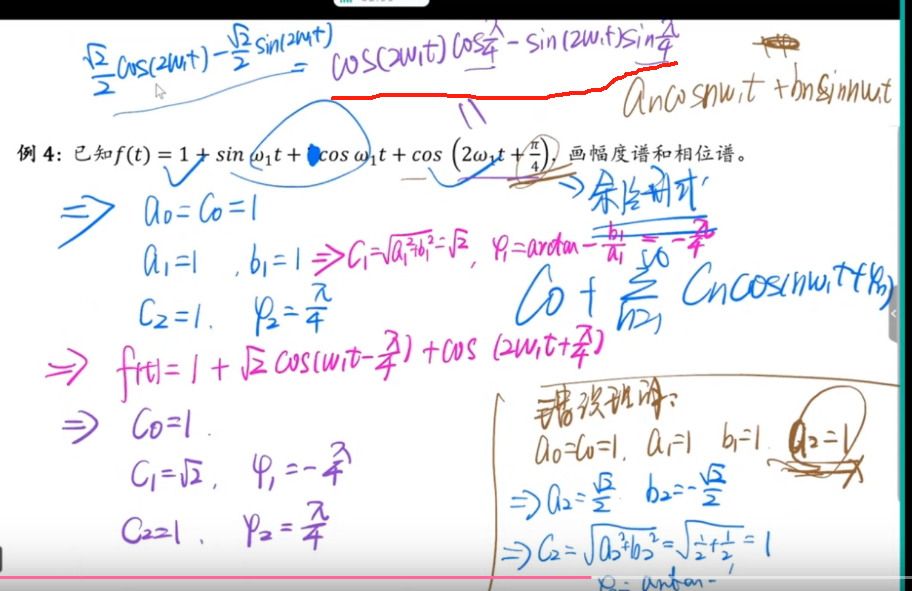 √2/2 cos(2ω₁t) - √2/2 sin(2ω₁t) = cos(2ω₁t)cosπ/4 - sin(2ω₁t)sinπ/4
aₙcosnω₁t + bₙsinnω₁t
例 4：已知f(t) = 1 + sin ω₁t + cos ω₁t + cos (2ω₁t + π/4)，画幅度谱和相位谱。
⇒ a₀=C₀=1
⇒ 余弦形式
a₁=1 , b₁=1 ⇒ C₁=√(a₁²+b₁²)=√2, φ₁=arctan-b₁/a₁ = -π/4
C₂=1. φ₂=π/4
C₀+∑ₙ₌₁^∞ Cₙcos(nω₁t+φₙ)
⇒ f(t)=1+√2cos(ω₁t-π/4)+cos(2ω₁t+π/4)
⇒ C₀=1.
C₁=√2, φ₁=-π/4
C₂=1. φ₂=π/4
错误说明：
a₀=C₀=1, a₁=1 b₁=1. a₂=1
⇒ a₂=√2/2 b₂=-√2/2
⇒ C₂=√(a₂²+b₂²)=√(1/2+1/2)=1